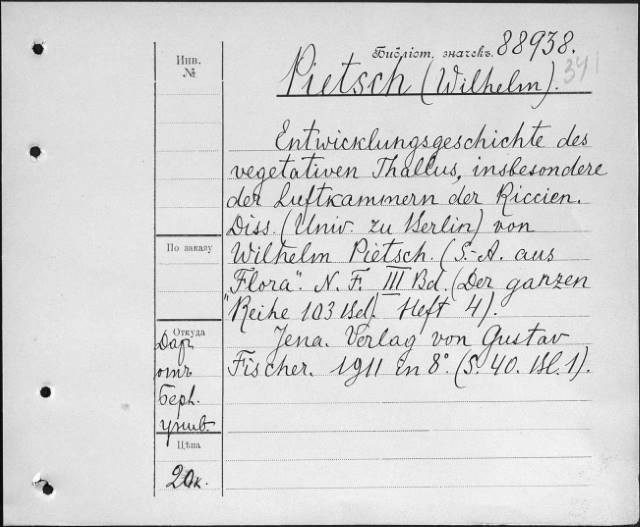 Инв.
№
Библіот. значекъ. 88938.
341
Pietsch (Wilhelm).
Entwicklungsgeschichte des
vegetativen Thallus, insbesondere
der Luftkammern der Riccien.
Diss. (Univ. zu Berlin) von
По заказу
Wilhelm Pietsch. (S.-A. aus
"Flora". N. F. III Bd. (Der ganzen
Reihe 103 Bd). Heft 4).
Откуда
Jena. Verlag von Gustav
Fischer. 1911 in 8°. (S. 40. Bl. 1).
Дар
отъ
Берл.
унив.
Цѣна
20к.